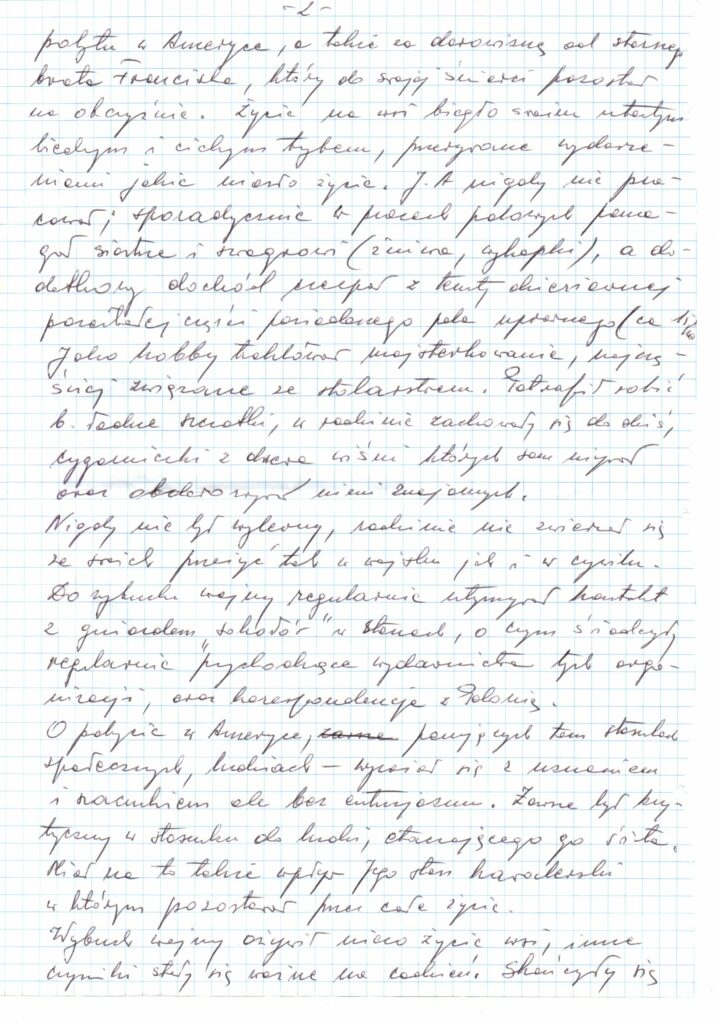 - 2 -
pobytu w Ameryce, a także za darowizną od starszego
brata Franciszka, który do swojej śmierci pozostał
na obczyźnie. Życie na wsi biegło swoim utartym
biednym i cichym trybem, przegrane wydarze-
niami jakie niosło życie. J.A nigdy nie pra-
cował; sporadycznie w pracach polowych poma-
gał siostrze i szwagrowi (żniwa, wykopki), a do-
datkowy dochód czerpał z tenuty dzierżawnej
pozostałej części posiadanego pola uprawnego (ca
Jako hobby traktował majsterkowanie, najczę-
ściej związane ze stolarstwem. Potrafił robić
b. ładne szczotki, w rodzinie zachowały się do dziś,
cygarniczki z drzewa wiśni których sam używał
oraz obdarowywał nimi znajomych.
Nigdy nie był wylewny, rodzinie nie zwierzał się
ze swoich przeżyć tak w wojsku jak i w cywilu.
Do wybuchu wojny regularnie utrzymywał kontakt
z gniazdem "sokołów" w Stanach, o czym świadczyły
regularnie przychodzące wydawnictwa tych orga-
nizacji, oraz korespondencja z Polonią.
O pobycie w Ameryce, panujących tam stosunkach
społecznych, ludziach – wyrażał się z uznaniem
i szacunkiem ale bez entuzjazmu. Zawsze był kry-
tyczny w stosunku do ludzi, otaczającego go świata.
Miał na to także wpływ Jego stan kawalerski
w którym pozostawał przez całe życie.
Wybuch wojny ożywił nieco życie wsi, inne
czynniki stały się ważne na codzień. Skończyły się